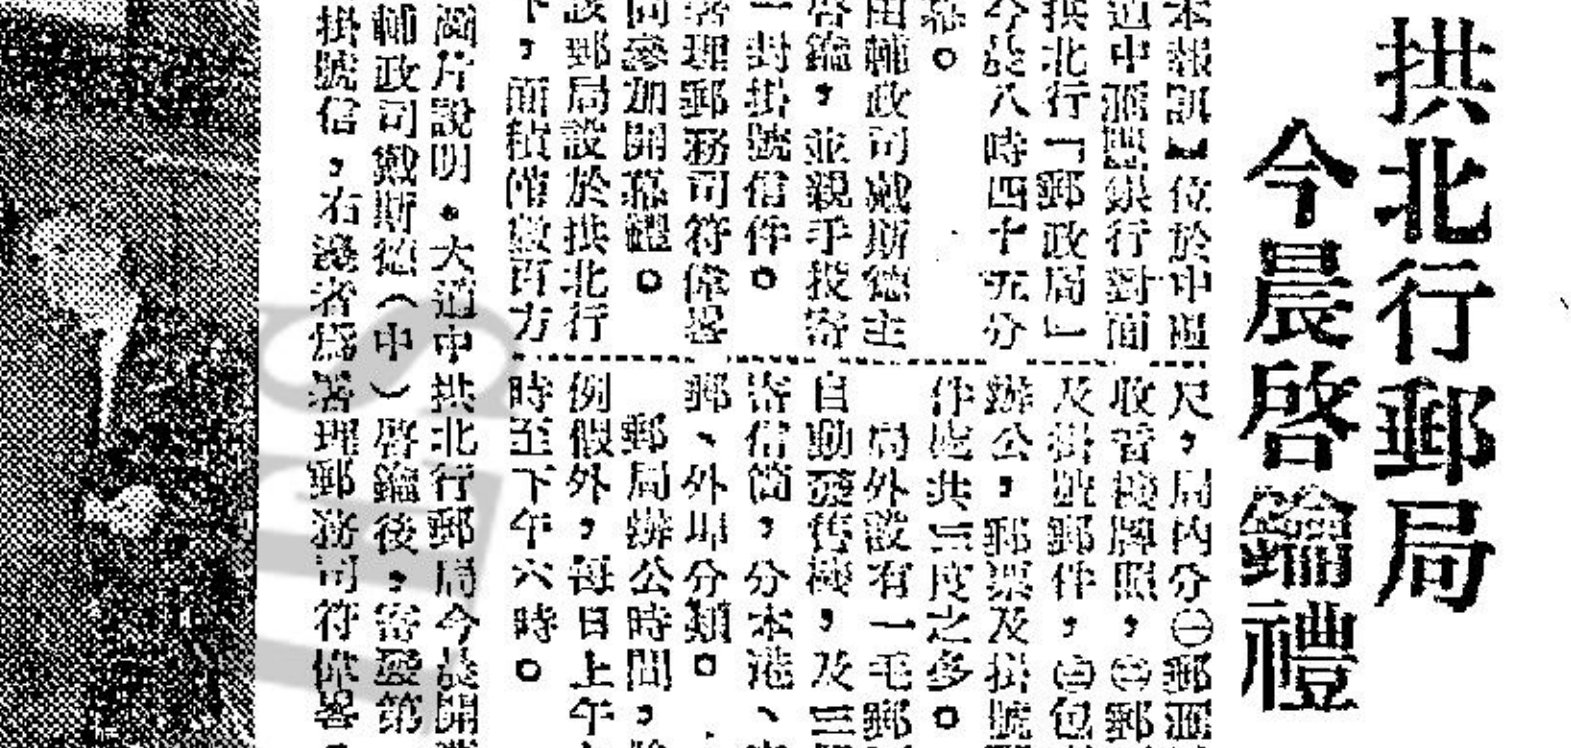 拱北行郵局
今晨啓鑰禮
本報訊】位於中區
道中滙豐銀行對面
拱北行「郵政局」
今晨八時四十五分
幕。
由輔政司戴斯德主
啓鑰，並親手投寄
一封掛號信件。
署理郵務司符偉畧
同參加開幕禮。
該郵局設於拱北行
下，面積僅數百方
尺，局內分㊀郵滙
收音機牌照，㊁郵
及掛號郵件，㊂包
辦公，郵票及掛號郵
件處共三度之多。
局外設有一毛郵
自動發售機，及三個
寄信筒，分本港、
郵、外埠分類。
郵局辦公時間，除
例假外，每日上午
時至下午六時。
圖片說明。大道中拱北行郵局今晨開
輔政司戴斯德（中）啓鑰後，寄發第
掛號信，右邊者爲署理郵務司符偉畧